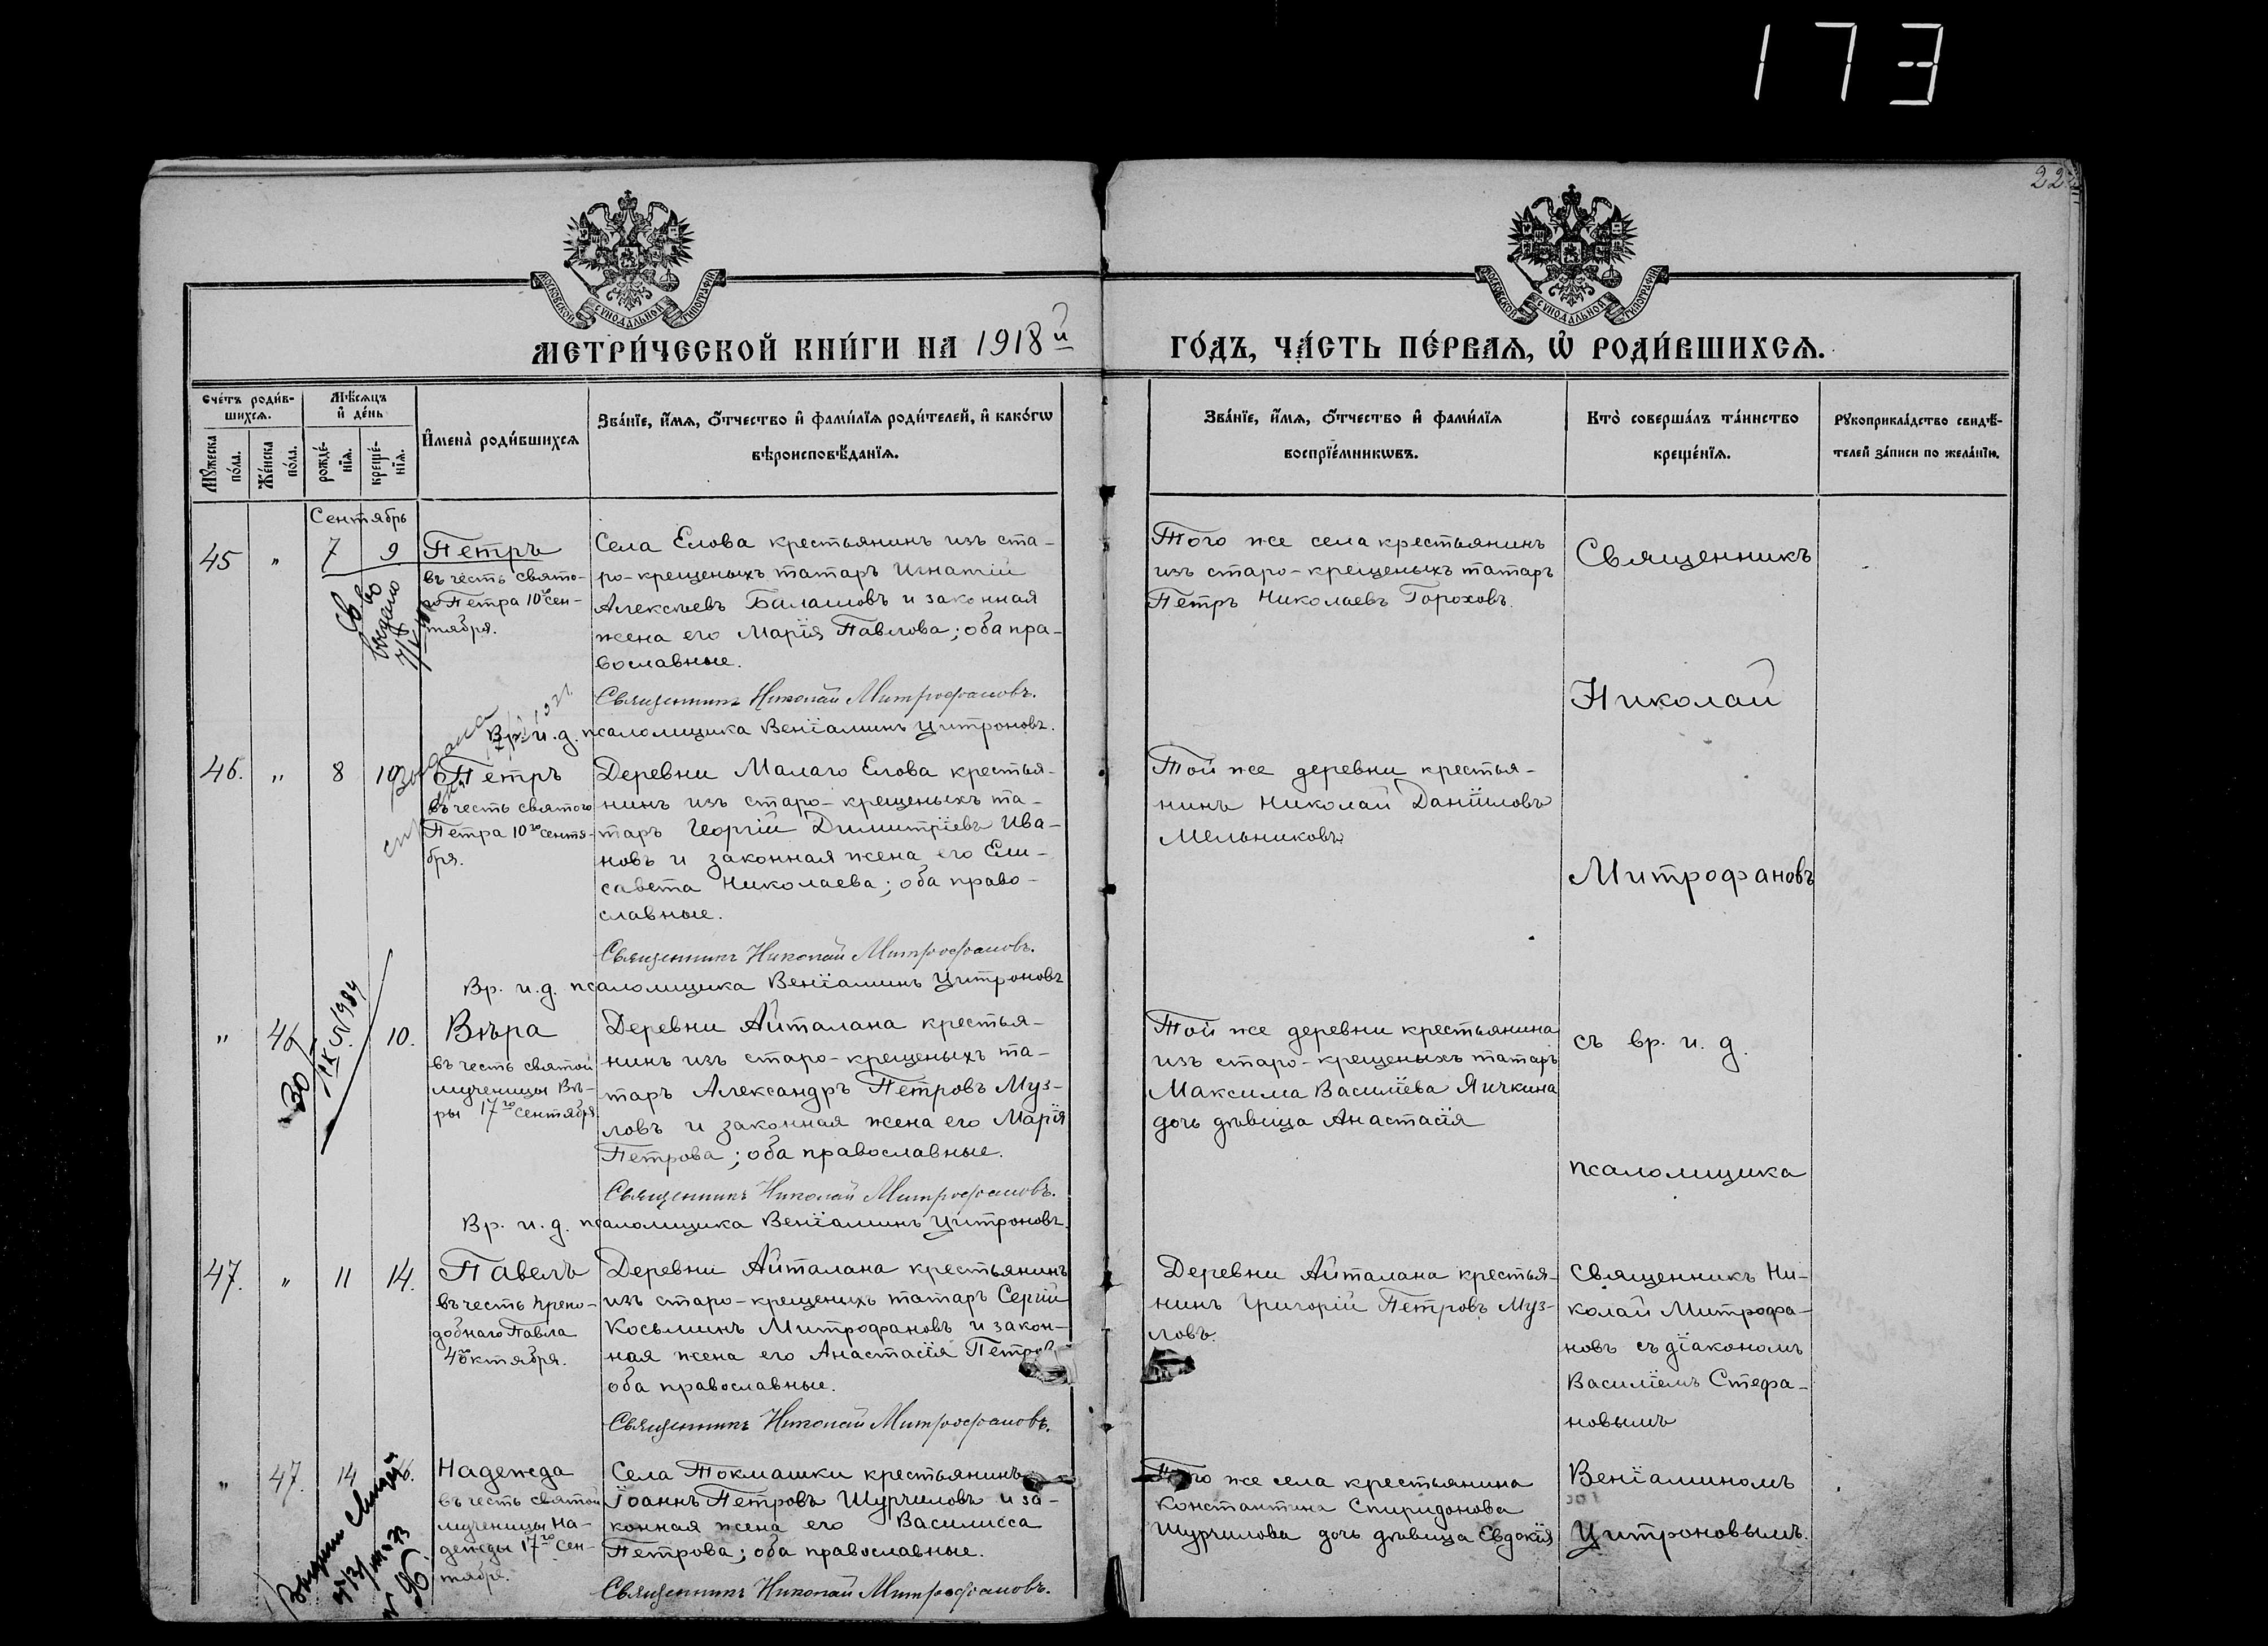 173
22
МОСКОВСКОЙ СѴНОДАЛЬНОЙ ТИПОГРАФІИ
МОСКОВСКОЙ СѴНОДАЛЬНОЙ ТИПОГРАФІИ
МЕТРИ́ЧЕСКОЙ КНИ́ГИ НА 1918й
ГО́ДЪ, ЧА́СТЬ ПЕ́РВАѦ, Ѡ҆ РОДИ́ВШИХСѦ.
Сче́тъ роди́в-
шихсѧ.
Мꙋ́жеска
по́ла.
Же́нска
по́ла.
Мѣ́сѧцъ
и҆ де́нь
рожде́-
нїѧ.
креще́-
нїѧ.
И҆мена̀ роди́вшихсѧ
Зва́нїе, и҆́мѧ, ѻ҆́тчество и҆ фами́лїѧ роди́телей, и҆ како́гѡ
вѣроисповѣ́данїѧ.
Зва́нїе, и҆́мѧ, ѻ҆́тчество и҆ фами́лїѧ
воспрїе́мникѡвъ.
Кто̀ соверша́лъ та́инство
креще́нїѧ.
Рꙋкоприкла́дство свидѣ́-
телей за́писи по жела́нїю.
Сентябрь
45 " 7 9
Петръ
въ честь свято-
го Петра 10го сен-
тября.
Св во
выдано
Села Елова крестьянинъ изъ ста-
ро-крещеныхъ татаръ Игнатій
Алексѣевъ Балашовъ и законная
жена его Марія Павлова; оба пра-
вославные.
Священникъ Николай Митрофановъ.
Вр. и. д. псаломщика Веніаминъ Цитроновъ.
Того же села крестьянинъ
изъ старо-крещеныхъ татаръ
Петръ Николаевъ Гороховъ.
Священникъ
Николай
46. " 8 10
Петръ
въ честь святого
Петра 10го сентя-
бря.
Деревни Малаго Елова крестья-
нинъ изъ старо-крещеныхъ та-
таръ Георгій Димитріевъ Ива-
новъ и законная жена его Ели-
савета Николаева; оба право-
славные.
Священникъ Николай Митрофановъ.
Вр. и. д. псаломщика Веніаминъ Цитроновъ
Той же деревни крестья-
нинъ Николай Даніиловъ
Мельниковъ
Митрофановъ
" 46 10.
30/IX 1984
Вѣра
въ честь святой
мученицы Вѣ-
ры 17го сентября.
Деревни Айталана крестья-
нинъ изъ старо-крещеныхъ та-
таръ Александръ Петровъ Муз-
ловъ и законная жена его Марія
Петрова; оба православные.
Священникъ Николай Митрофановъ.
Вр. и. д. псаломщика Веніаминъ Цитроновъ.
Той же деревни крестьянина
изъ старо-крещеныхъ татаръ
Максима Василіева Яичкина
дочь дѣвица Анастасія
съ вр. и. д.
псаломщика
47. " 11 14.
Павелъ
въ честь препо-
добнаго Павла
4го октября.
Деревни Айталана крестьянинъ
изъ старо-крещеныхъ татаръ Сергій
Косьминъ Митрофановъ и закон-
ная жена его Анастасія Петров
оба православные.
Священникъ Николай Митрофановъ.
Деревни Айталана крестья-
нинъ Григорій Петровъ Муз-
ловъ.
Священникъ Ни-
колай Митрофа-
новъ съ діакономъ
Василіемъ Стефа-
новымъ
" 47. 14
Надежда
въ честь святой
мученицы На-
дежды 17го сен-
тября.
96
Села Токмашки крестьянинъ
Іоаннъ Петровъ Шурчиловъ и за-
конная жена его Василисса
Петрова; оба православные.
Священникъ Николай Митрофановъ.
Того же села крестьянина
Константина Спиридонова
Шурчилова дочь дѣвица Евдокія
Веніаминомъ
Цитроновымъ.